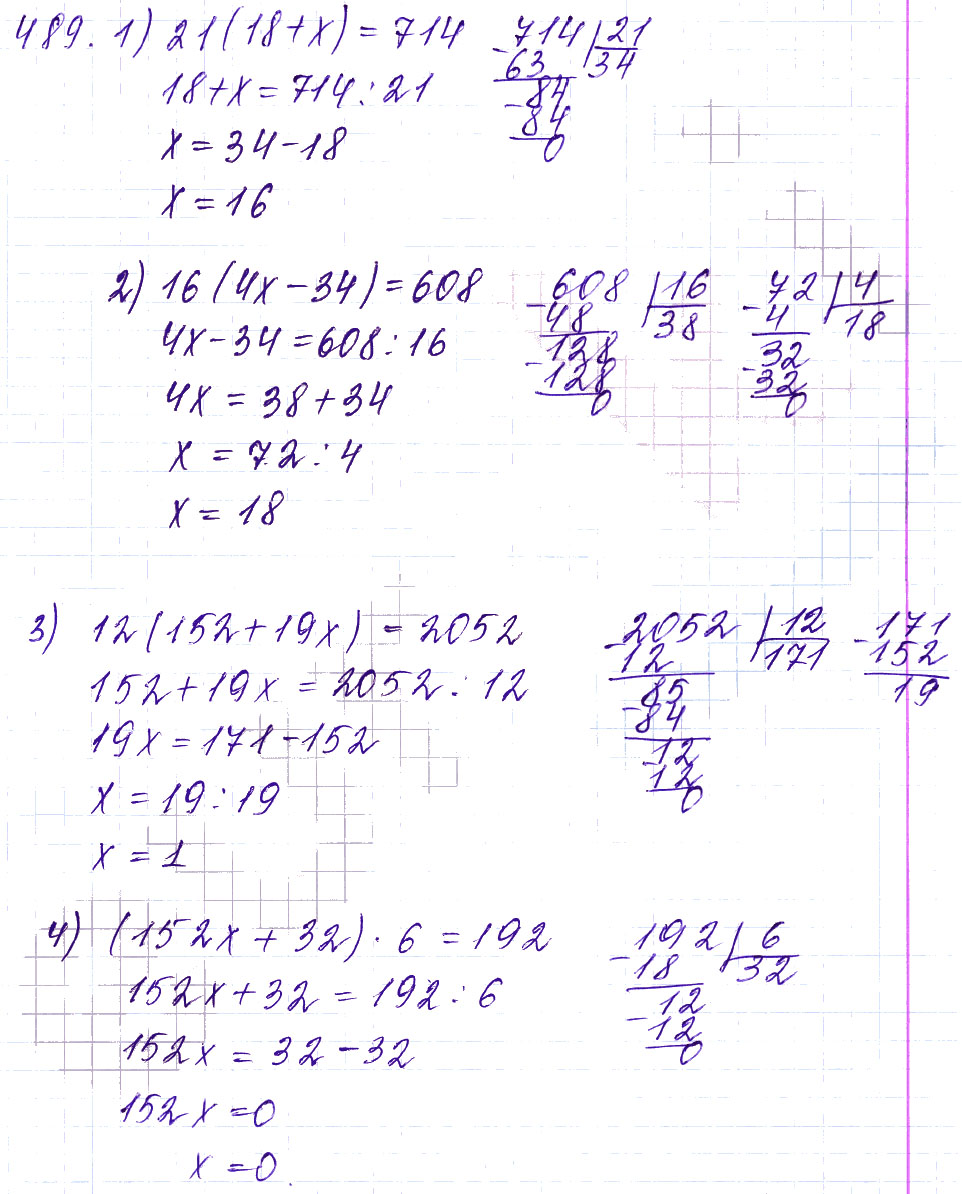 489. 1) 21(18+x) = 714
18+x = 714 : 21
x = 34-18
x = 16
-714 | 21
63 34
-84
84
0
2) 16(4x-34) = 608
4x-34 = 608 : 16
4x = 38+34
x = 72 : 4
x = 18
-608 | 16
48 38
-128
128
0
-72 | 4
4 18
-32
32
0
3) 12(152+19x) = 2052
152+19x = 2052 : 12
19x = 171-152
x = 19 : 19
x = 1
-2052 | 12
12 171
-85
84
-12
12
0
-171
152
19
4) (152x+32) · 6 = 192
152x+32 = 192 : 6
152x = 32-32
152x = 0
x = 0.
-192 | 6
18 32
-12
12
0